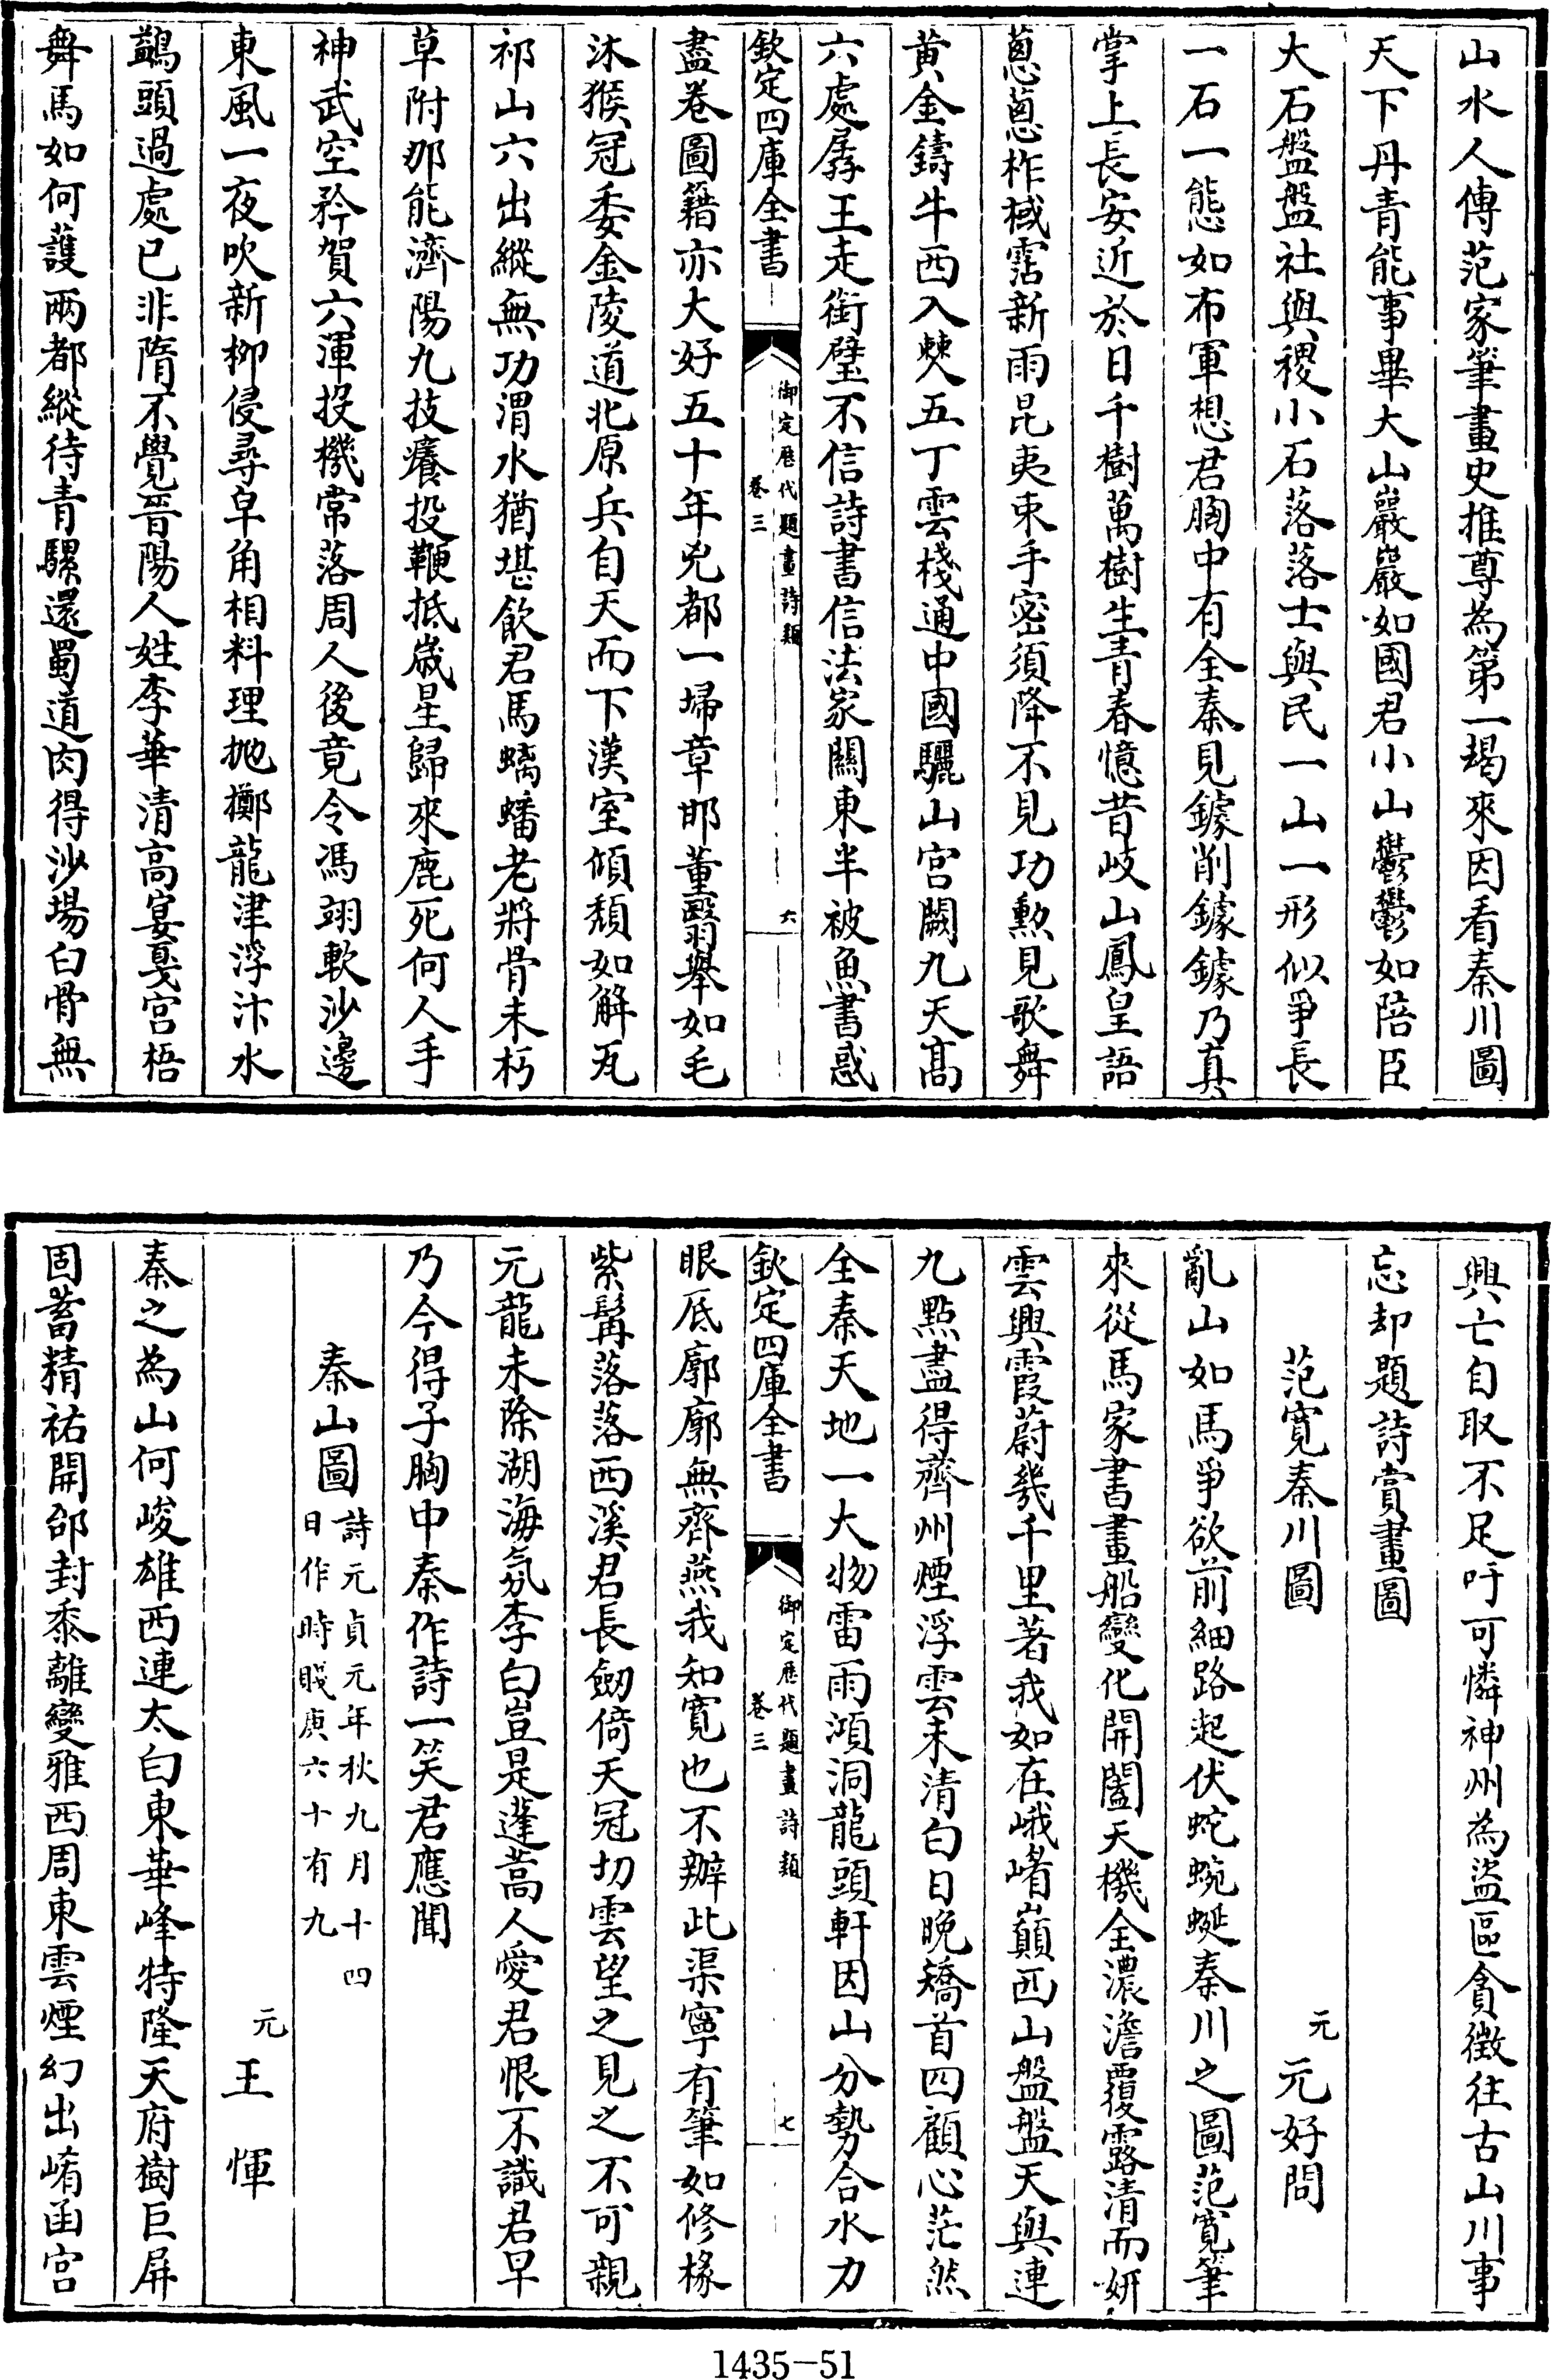 山水人傳范家筆畫史推尊為第一朅來因看秦川圖
天下丹青能事畢大山巖巖如國君小山鬱鬱如陪臣
大石盤盤社與稷小石落落士與民一山一形似爭長
一石一態如布軍想君胸中有全秦見鐻削鐻鐻乃真
掌上長安近於日千樹萬樹生青春憶昔岐山鳳皇語
蔥蔥柞棫霑新雨昆夷束手密須降不見功勲見歌舞
黄金鑄牛西入僰五丁雲棧通中國驪山宫闕九天高
六處孱王走銜璧不信詩書信法家關東半被魚書惑
欽定四庫全書
御定歴代題畫詩類
卷三
六
盡卷圖籍亦大好五十年兇都一埽章邯董翳舉如毛
沐猴冠委金陵道北原兵自天而下漢室傾頽如解瓦
祁山六出縱無功渭水猶堪飲君馬螭蟠老將骨未朽
草附那能濟陽九技癢投鞭抵嵗星歸來鹿死何人手
神武空矜賀六渾投機常落周人後竟令馮翊軟沙邊
東風一夜吹新柳侵尋皁角相料理抛擲龍津浮汴水
鷁頭過處已非隋不覺晉陽人姓李華清高宴戛宫梧
舞馬如何護兩都縱待青騾還蜀道肉得沙場白骨無
興亡自取不足吁可憐神州為盜區貪徴往古山川事
忘却題詩賞畫圖
范寛秦川圖
元 元好問
亂山如馬爭欲前細路起伏蛇蜿蜒秦川之圖范寛筆
來從馬家書畫船變化開闔天機全濃澹覆露清而妍
雲興霞蔚幾千里著我如在峨嵋巔西山盤盤天與連
九點盡得齊州煙浮雲未清白日晚矯首四顧心茫然
全秦天地一大物雷雨澒洞龍頭軒因山分勢合水力
欽定四庫全書
御定歴代題畫詩類
卷三
七
眼底廓廓無齊燕我知寛也不辦此渠寧有筆如修椽
紫髯落落西溪君長劒倚天冠切雲望之見之不可親
元龍未除湖海氛李白豈是蓬蒿人愛君恨不識君早
乃今得子胸中秦作詩一笑君應聞
秦山圖
詩元貞元年秋九月十四
日作時賤庚六十有九
元 王惲
秦之為山何峻雄西連太白東華峰特隆天府樹巨屏
固蓄精祐開邰封黍離變雅西周東雲煙幻出崤函宫
1435-51